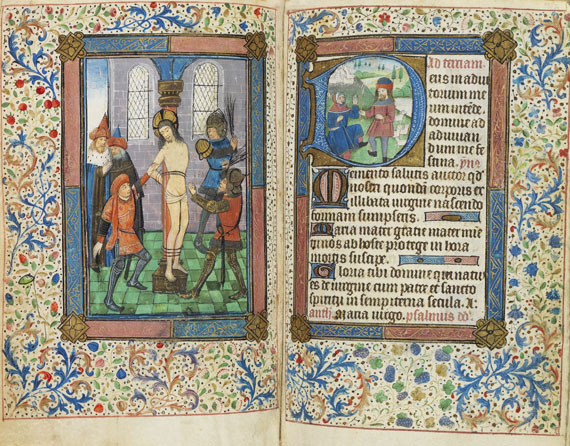 Ad terciam
eus in adiu
torium me
um intēde
domine ad
adiuuan
dum me fe
stina. yn9
Memento salutis auctor qd
nostri quondā corporis ex
illibata uirgine nascendo
formam sumpseris
Maria mater gratie mater mie
tu nos ab hoste protege in hora
mortis suscipe
Gloria tibi domine qui natus
es de uirgine cum patre et sancto
spiritu in sempiterna secula. A
anth. Maria uirgo. psalmus dd.